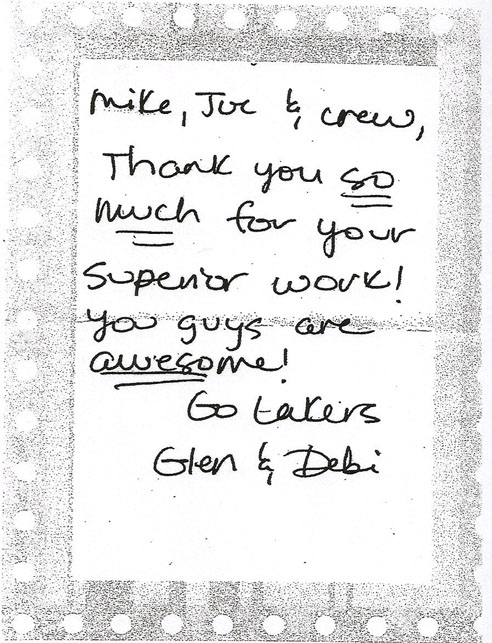 Mike, Joe & crew,
Thank you so
much for your
superior work!
You guys are
awesome!
Go Lakers
Glen & Debi